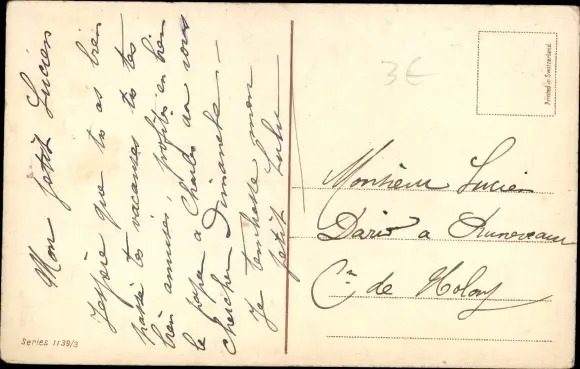 Mon petit Lucien
J'espère que tu as bien
passé tes vacances tu tes
bien amusé, profites en bien
le papa a Charles ira vous
chercher Dimanche –
Je tembrasse mon
petit Lulu
3€
Printed in Switzerland.
Monsieur Lucien
Dario a
Cn de
Series 1139/3